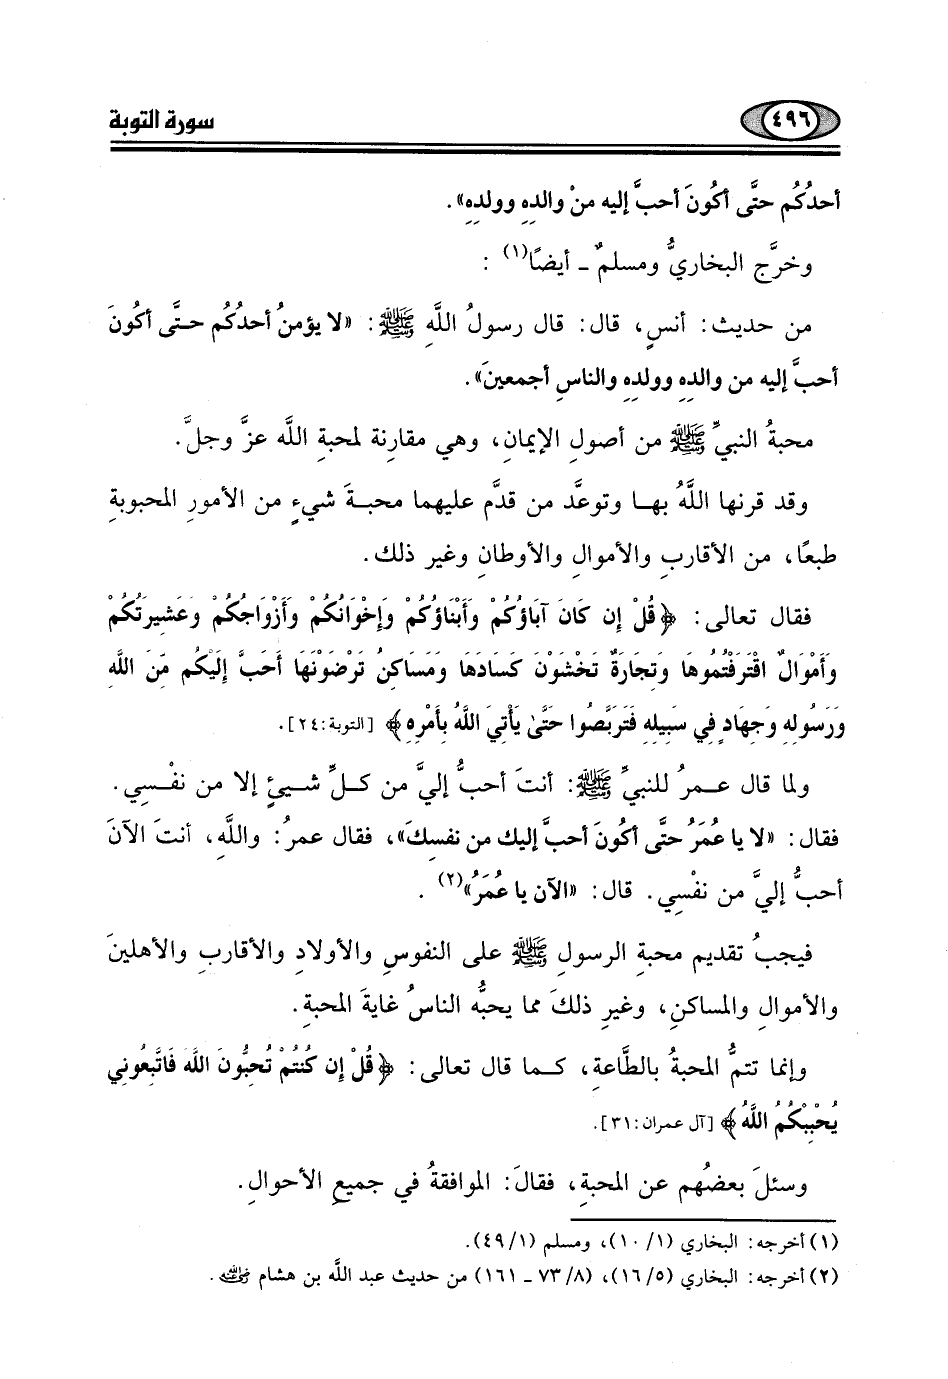 ٤٩٦
سورة التوبة
أحدُكُم حتَّى أكُونَ أحبَّ إليه منْ والدِهِ وولدِهِ».
وخرَّج البخاريُّ ومسلمٌ ـ أيضًا(١) :
من حديث: أنسٍ، قال: قال رسولُ اللَّهِ ﷺ: «لا يؤمنُ أحدُكُم حتَّى أكُونَ
أحبَّ إليه من والدِهِ وولدِهِ والناسِ أجمعينَ».
محبةُ النبيِّ ﷺ من أصولِ الإيمانِ، وهي مقارنة لمحبةِ اللَّه عزَّ وجلَّ.
وقد قرنها اللَّهُ بها وتوعَّد من قدَّم عليهما محبةَ شيءٍ من الأمورِ المحبوبةِ
طبعًا، من الأقاربِ والأموالِ والأوطانِ وغيرِ ذلك.
فقال تعالى: ﴿قُلْ إِن كَانَ آبَاؤُكُمْ وَأَبْنَاؤُكُمْ وَإِخْوَانُكُمْ وَأَزْوَاجُكُمْ وَعَشِيرَتُكُمْ
وَأَمْوَالٌ اقْتَرَفْتُمُوهَا وَتِجَارَةٌ تَخْشَوْنَ كَسَادَهَا وَمَسَاكِنُ تَرْضَوْنَهَا أَحَبَّ إِلَيْكُم مِّنَ اللَّهِ
وَرَسُولِهِ وَجِهَادٍ فِي سَبِيلِهِ فَتَرَبَّصُوا حَتَّىٰ يَأْتِيَ اللَّهُ بِأَمْرِهِ﴾ [التوبة:٢٤].
ولما قال عمرُ للنبيِّ ﷺ: أنتَ أحبُّ إليَّ من كلِّ شيئٍ إلا من نفْسِي.
فقال: «لا يا عُمَرُ حتَّى أكُونَ أحبَّ إليك من نفسِكَ»، فقال عمرُ: واللَّهِ، أنتَ الآنَ
أحبُّ إليَّ من نفْسِي. قال: «الآن يا عُمَرُ»(٢) .
فيجبُ تقديم محبةِ الرسولِ ﷺ على النفوسِ والأولادِ والأقاربِ والأهلينَ
والأموالِ والمساكنِ، وغيرِ ذلكَ مما يحبُّه الناسُ غايةَ المحبةِ.
وإنما تتمُّ المحبةُ بالطَّاعةِ، كما قال تعالى: ﴿قُلْ إِن كُنتُمْ تُحِبُّونَ اللَّهَ فَاتَّبِعُونِي
يُحْبِبْكُمُ اللَّهُ﴾ [آل عمران:٣١].
وسئلَ بعضُهم عن المحبةِ، فقالَ: الموافقةُ في جميعِ الأحوالِ.
(١) أخرجه: البخاري (١/ ١٠)، ومسلم (٤٩/١).
(٢) أخرجه: البخاري (١٦/٥)، (٧٣/٨ ـ ١٦١) من حديث عبد اللَّه بن هشام رضي الله عنه.